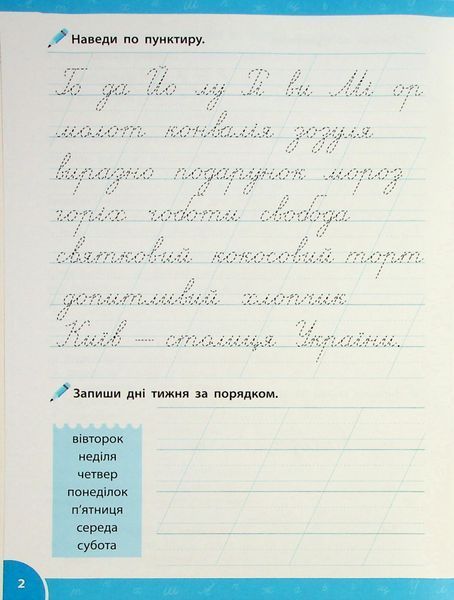 Наведи по пунктиру.
Го да Йо лу В ви Мі ор
молот конвалія зозуля
виразно подарунок мороз
горіх чоботи свобода
святковий кокосовий торт
допитливий хлопчик
Київ — столиця України.
Запиши дні тижня за порядком.
вівторок
неділя
четвер
понеділок
п'ятниця
середа
субота
2